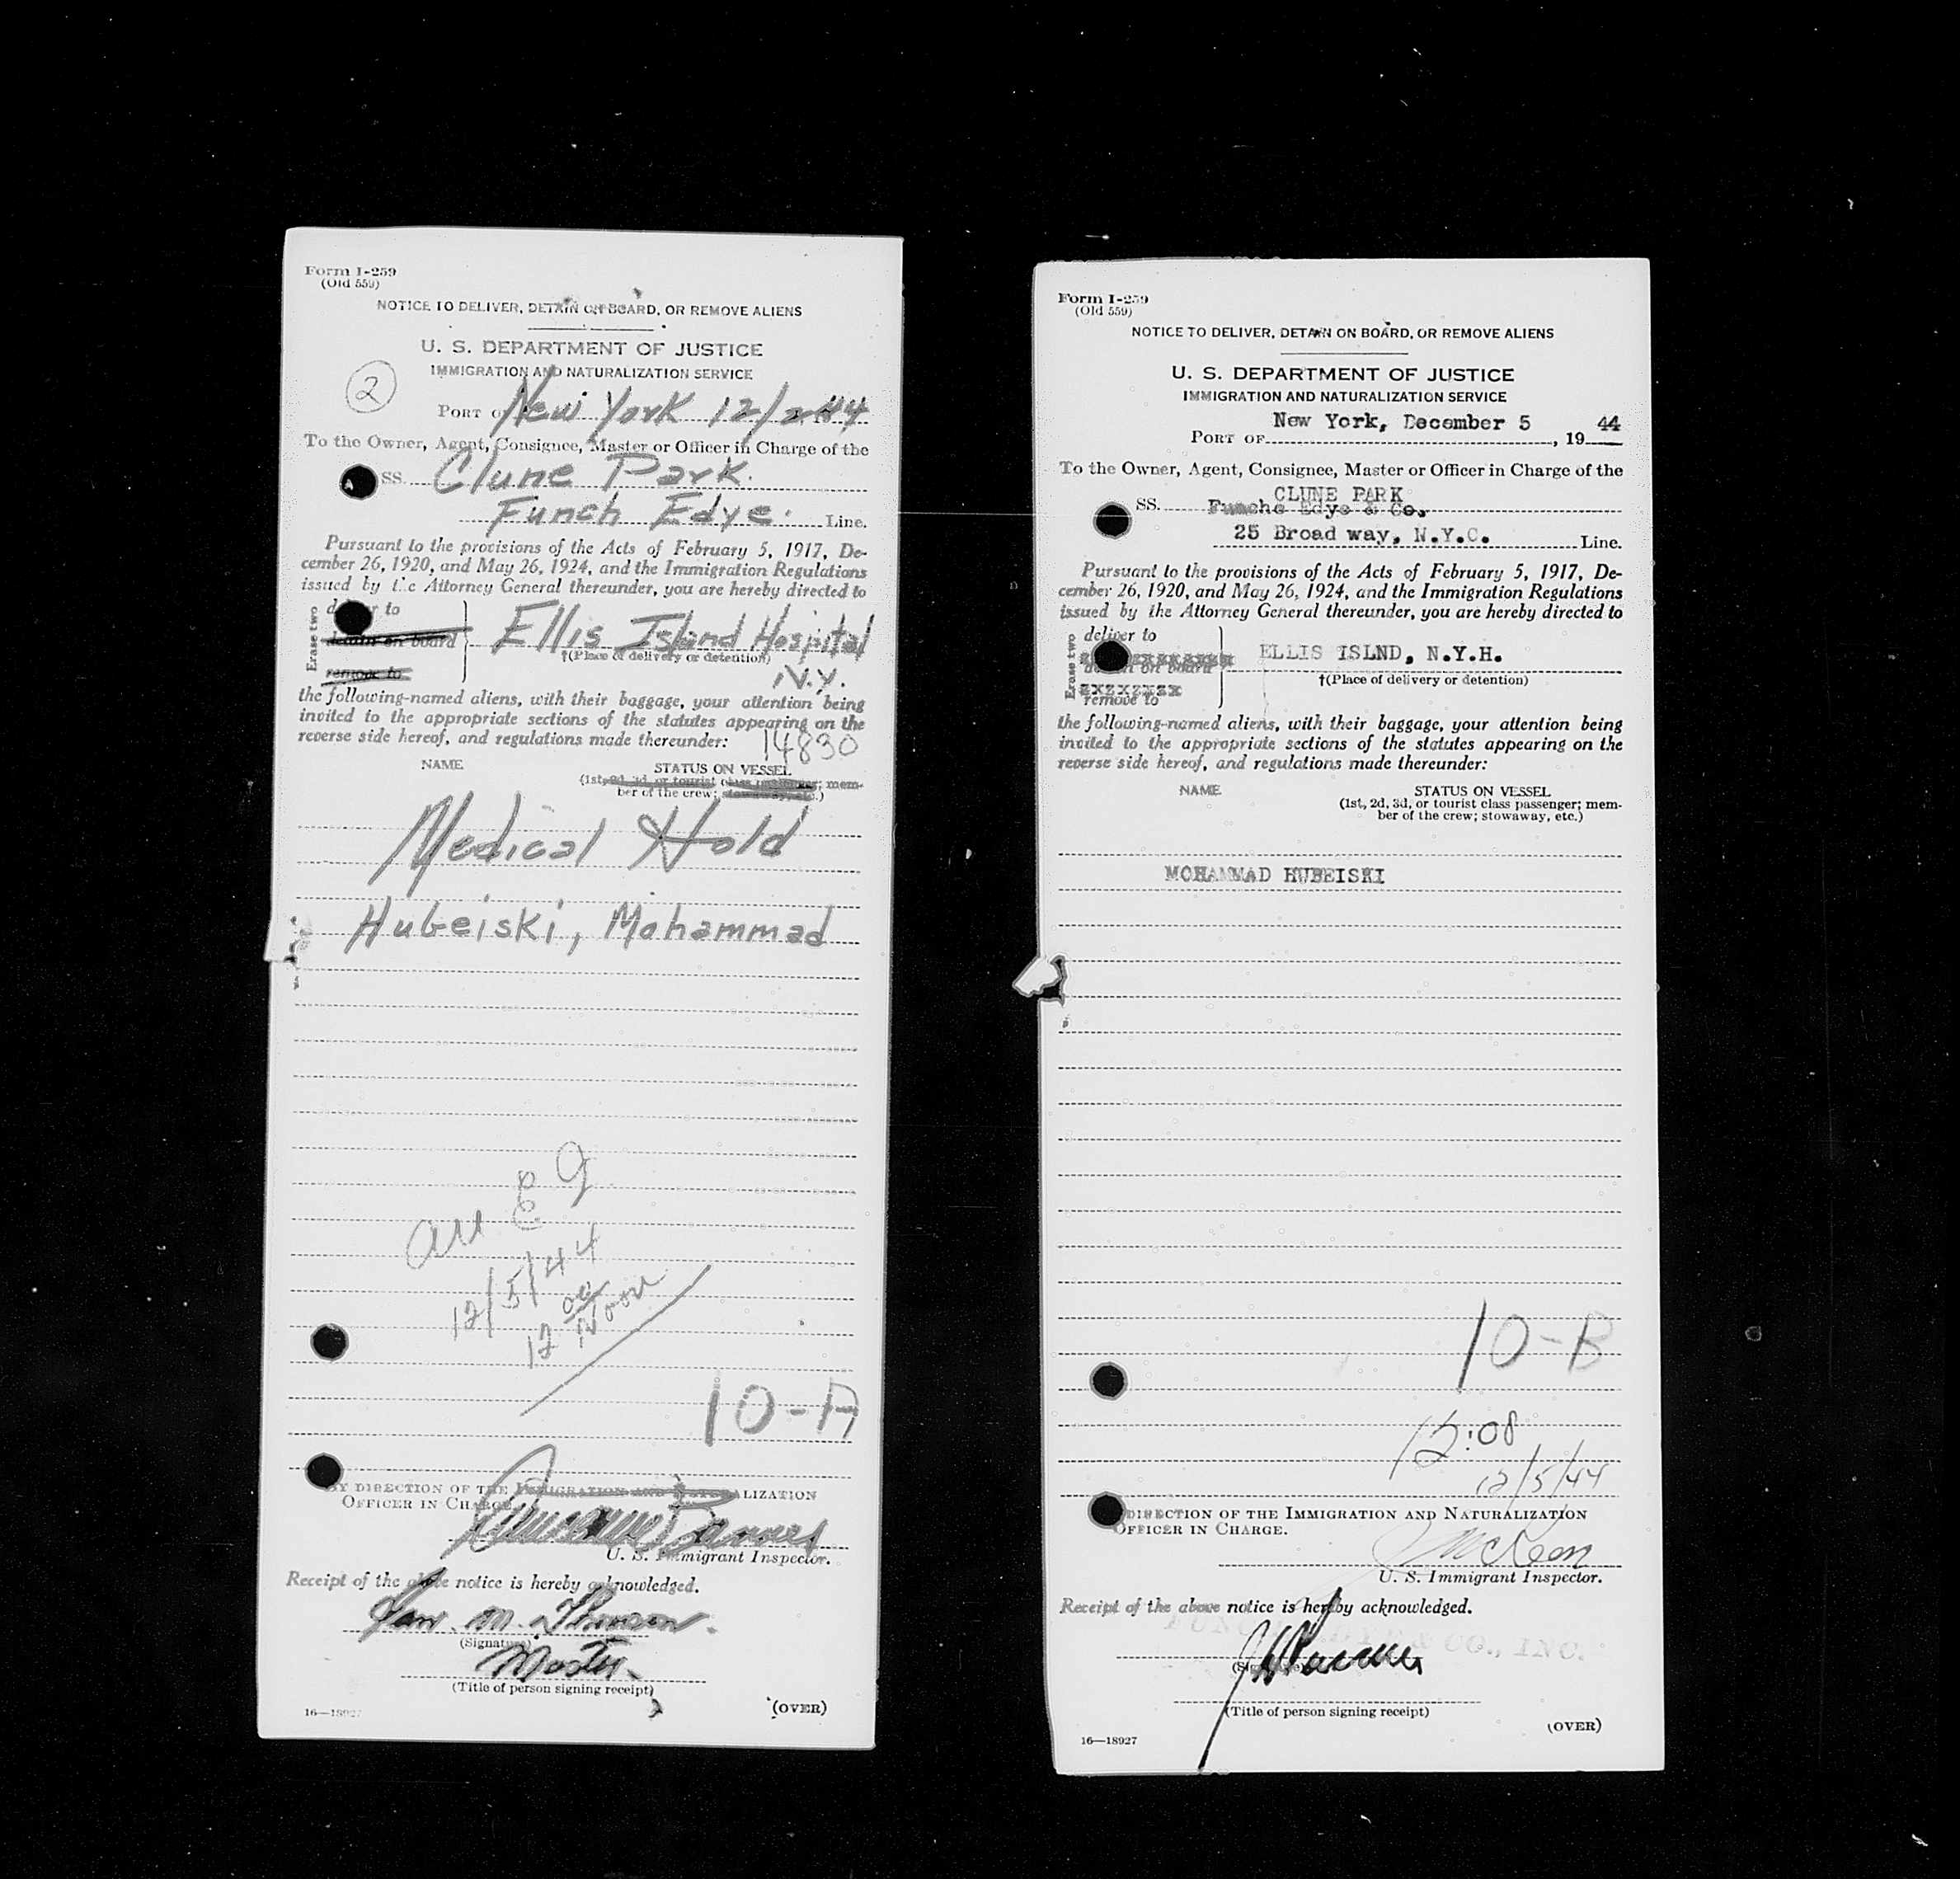 Form I-259
(Old 559)
NOTICE TO DELIVER, DETAIN ON BOARD, OR REMOVE ALIENS
U. S. DEPARTMENT OF JUSTICE
IMMIGRATION AND NATURALIZATION SERVICE
2
PORT OF New York 12/2 44
To the Owner, Agent, Consignee, Master or Officer in Charge of the
SS. Clune Park.
Funch Edye. Line.
Pursuant to the provisions of the Acts of February 5, 1917, De-
cember 26, 1920, and May 26, 1924, and the Immigration Regulations
issued by the Attorney General thereunder, you are hereby directed to
Erase two
deliver to
detain on board
Ellis Island Hospital
†(Place of delivery or detention)
remove to
N.Y.
the following-named aliens, with their baggage, your attention being
invited to the appropriate sections of the statutes appearing on the
reverse side hereof, and regulations made thereunder: 14830
NAME STATUS ON VESSEL
(1st, 2d, 3d, or tourist class passenger; mem-
ber of the crew; stowaway, etc.)
Medical Hold
Hubeiski, Mohammad
12/5/44
12 00 Noon
10-A
BY DIRECTION OF THE IMMIGRATION AND NATURALIZATION
OFFICER IN CHARGE.
U. S. Immigrant Inspector.
Receipt of the above notice is hereby acknowledged.
(Signature)
Master.
(Title of person signing receipt)
16—18927 (OVER)
Form I-259
(Old 559)
NOTICE TO DELIVER, DETAIN ON BOARD, OR REMOVE ALIENS
U. S. DEPARTMENT OF JUSTICE
IMMIGRATION AND NATURALIZATION SERVICE
New York, December 5 44
PORT OF , 19
To the Owner, Agent, Consignee, Master or Officer in Charge of the
CLUNE PARK
SS. Funche Edye & Co.
25 Broad way, N.Y.C. Line.
Pursuant to the provisions of the Acts of February 5, 1917, De-
cember 26, 1920, and May 26, 1924, and the Immigration Regulations
issued by the Attorney General thereunder, you are hereby directed to
Erase two
deliver to
detain on board
ELLIS ISLND, N.Y.H.
†(Place of delivery or detention)
remove to
the following-named aliens, with their baggage, your attention being
invited to the appropriate sections of the statutes appearing on the
reverse side hereof, and regulations made thereunder:
NAME STATUS ON VESSEL
(1st, 2d, 3d, or tourist class passenger; mem-
ber of the crew; stowaway, etc.)
MOHAMMAD HUBEISKI
10-B
12:08
12/5/44
DIRECTION OF THE IMMIGRATION AND NATURALIZATION
OFFICER IN CHARGE.
McKeon
U. S. Immigrant Inspector.
Receipt of the above notice is hereby acknowledged.
CO., INC.
(Signature)
(Title of person signing receipt)
(OVER)
16—18927